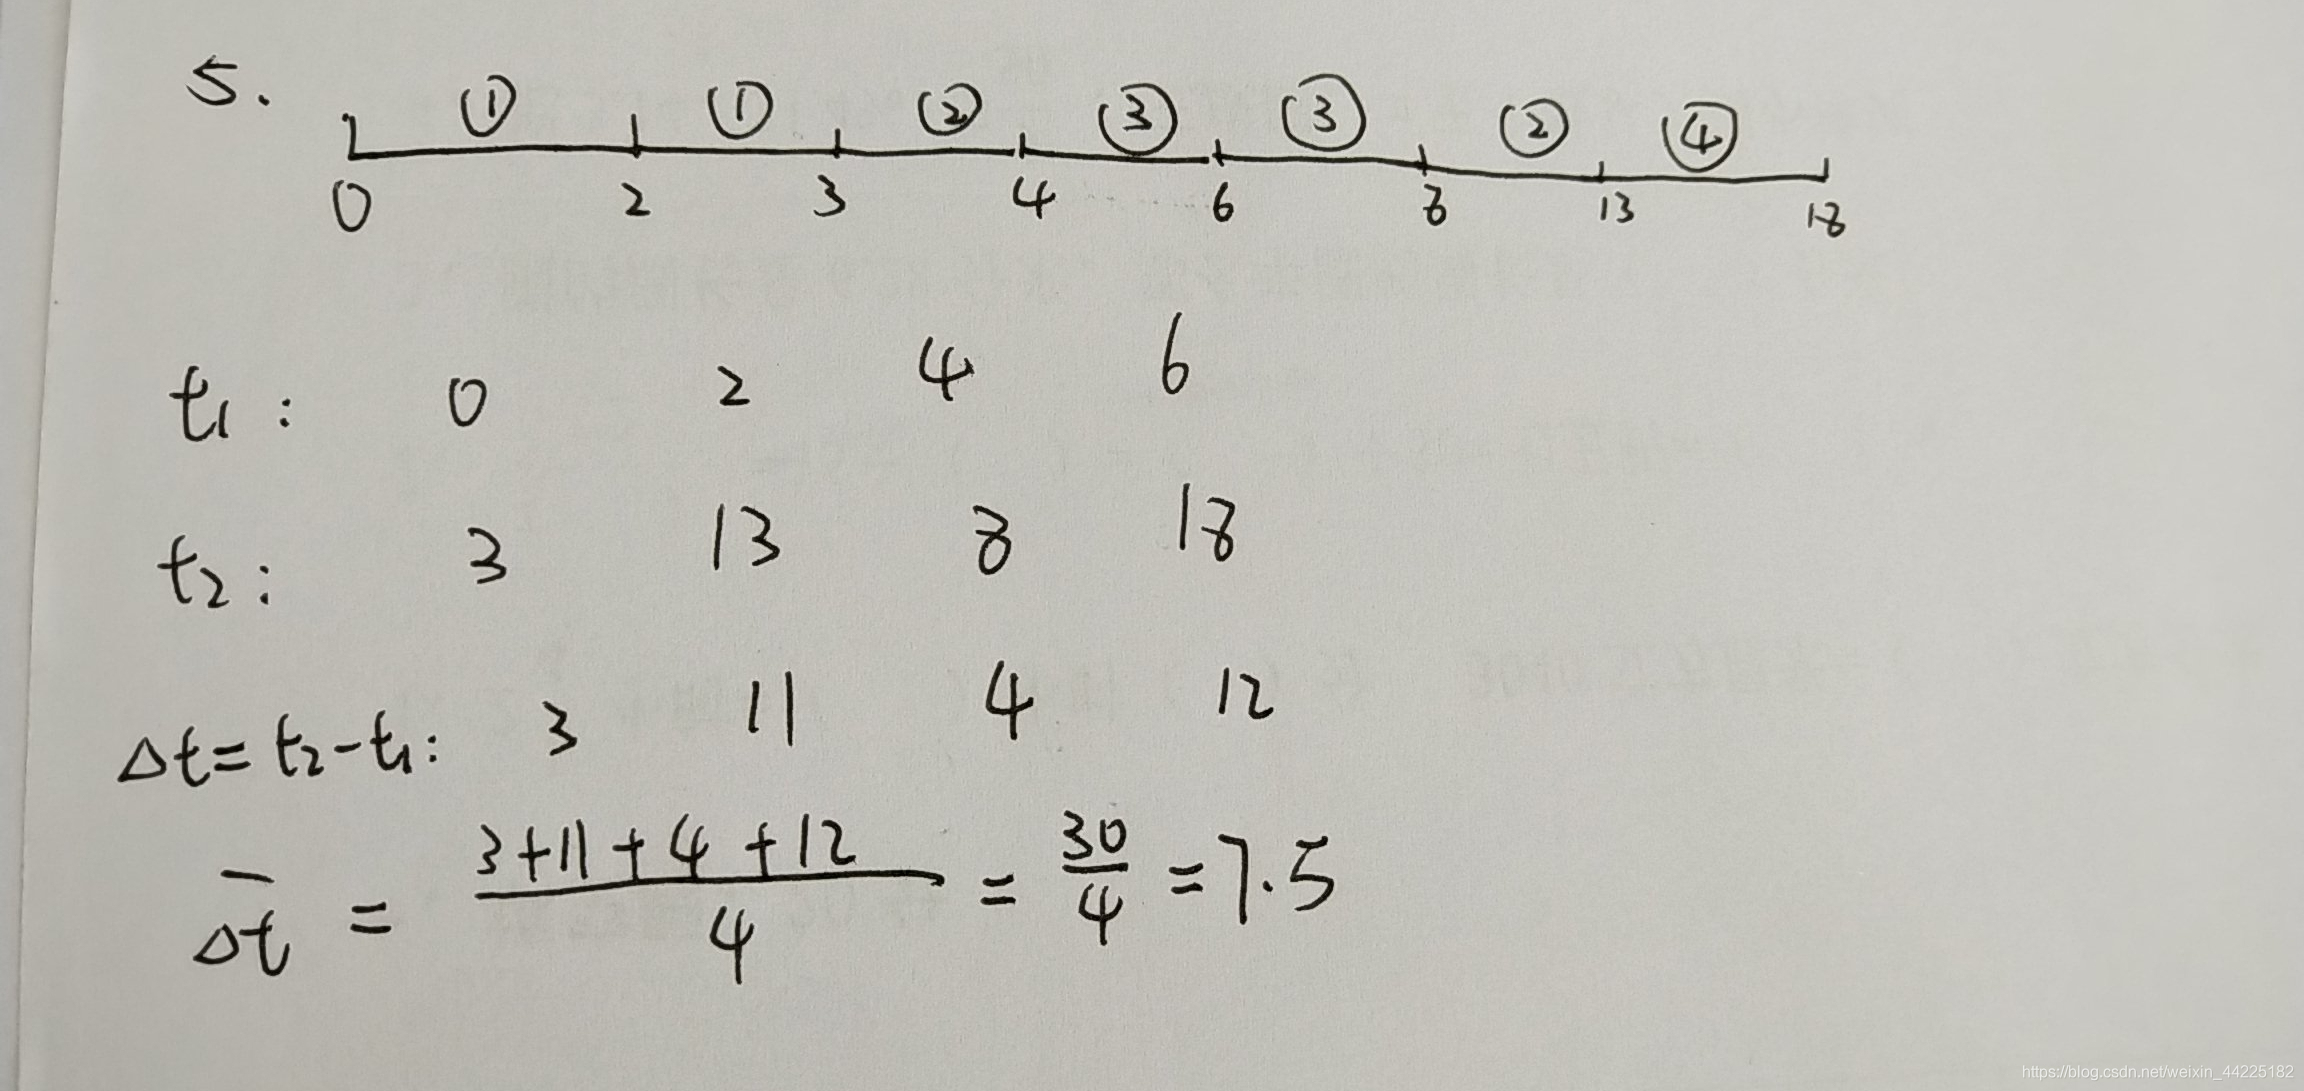 5.
① ① ② ③ ③ ② ④
0 2 3 4 6 8 13 18
t₁ : 0 2 4 6
t₂ : 3 13 8 18
Δt = t₂-t₁: 3 11 4 12
Δt̅ = (3+11+4+12)/4 = 30/4 = 7.5
https://blog.csdn.net/weixin_44225182